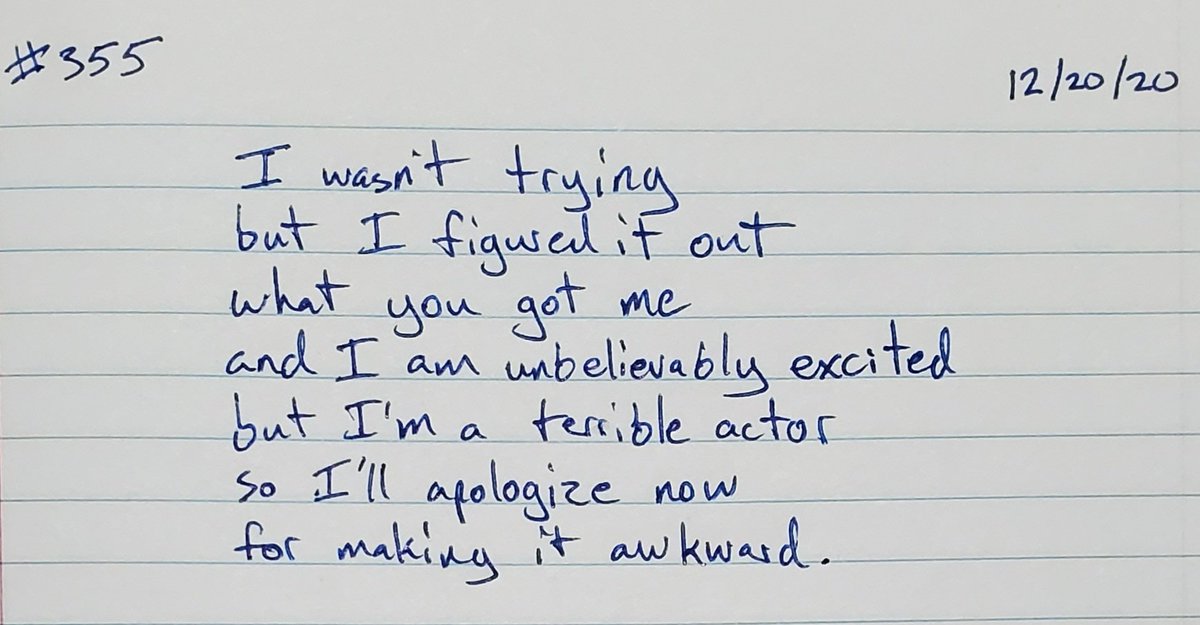 #355
12/20/20
I wasn't trying
but I figured it out
what you got me
and I am unbelievably excited
but I'm a terrible actor
so I'll apologize now
for making it awkward.